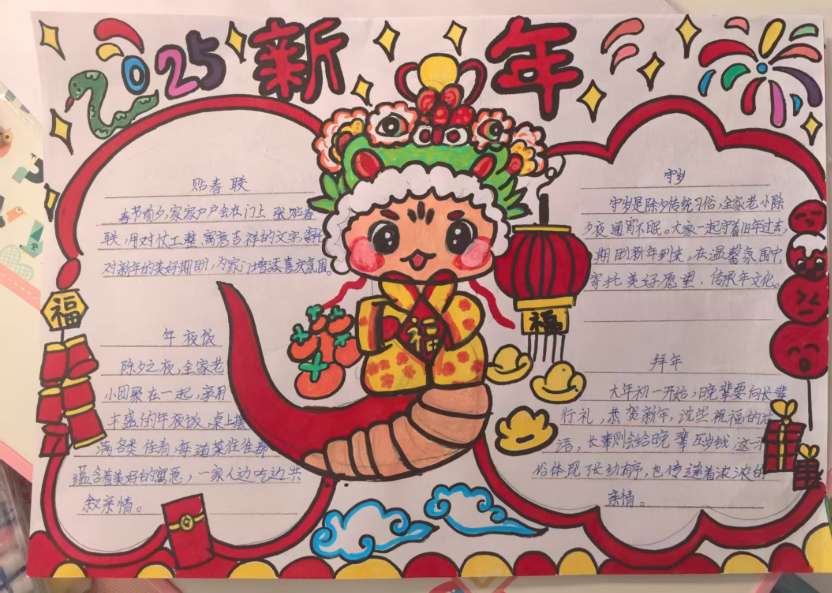 2025 新年
贴春联
春节前夕,家家户户会在门上张贴春
联,用对仗工整,寓意吉祥的文字寄
对新年的美好期盼,为家门增添喜庆氛围。
年夜饭
除夕之夜,全家老
小团聚在一起,享用
丰盛的年夜饭,桌上摆
满各类佳肴,每道菜往往都
蕴含着美好的寓意,一家人边吃边共
叙亲情。
福
福
福
守岁
守岁是除夕传统习俗,全家老小除
夕夜通宵不眠。大家一起守着旧年过去,
期盼新年到来,在温馨氛围中,
寄托美好愿望,传承年文化。
拜年
大年初一开始,晚辈要向长辈
行礼,恭贺新年,说些祝福的
话,长辈则会给晚辈压岁钱,这
体现长幼有序,也传递着浓浓的
亲情。